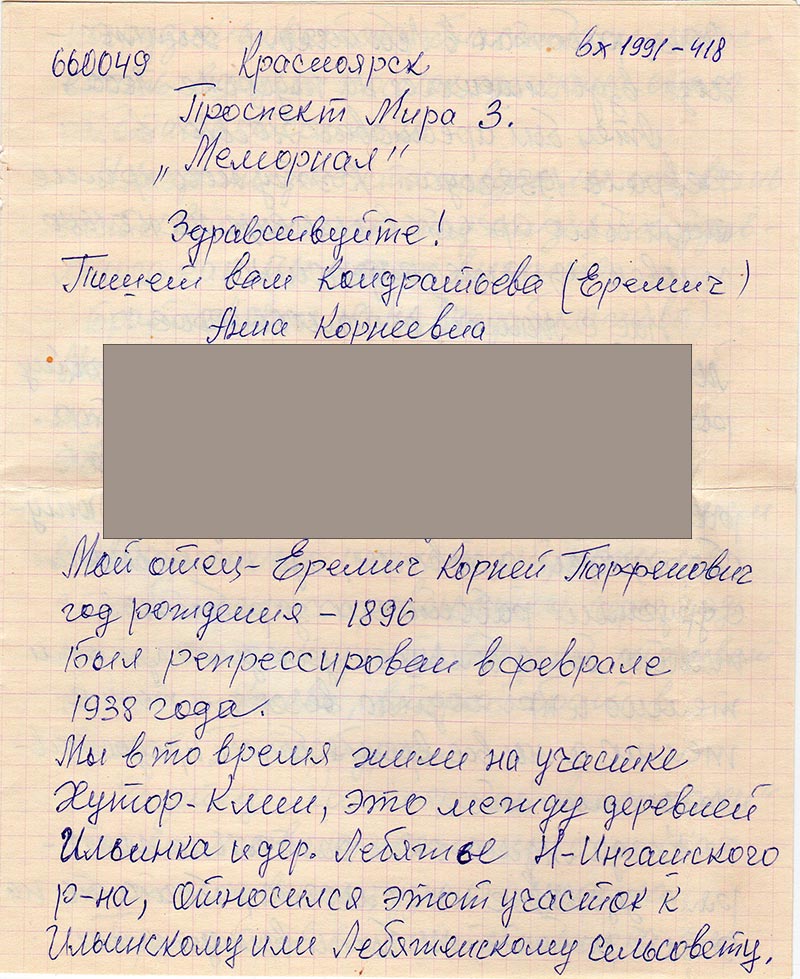 660049 Красноярск
вх 1991-418
Проспект Мира 3.
„Мемориал"
Здравствуйте!
Пишет вам Кондратьева (Еремич)
Анна Корнеевна
Мой отец - Еремич Корней Парфенович
год рождения - 1896
Был репрессирован в феврале
1938 года.
Мы в то время жили на участке
Хутор-Клин, это между деревней
Ильинка и дер. Лебяжье Н-Ингашского
р-на, относился этот участок к
Ильинскому или Лебяженскому сельсовету.